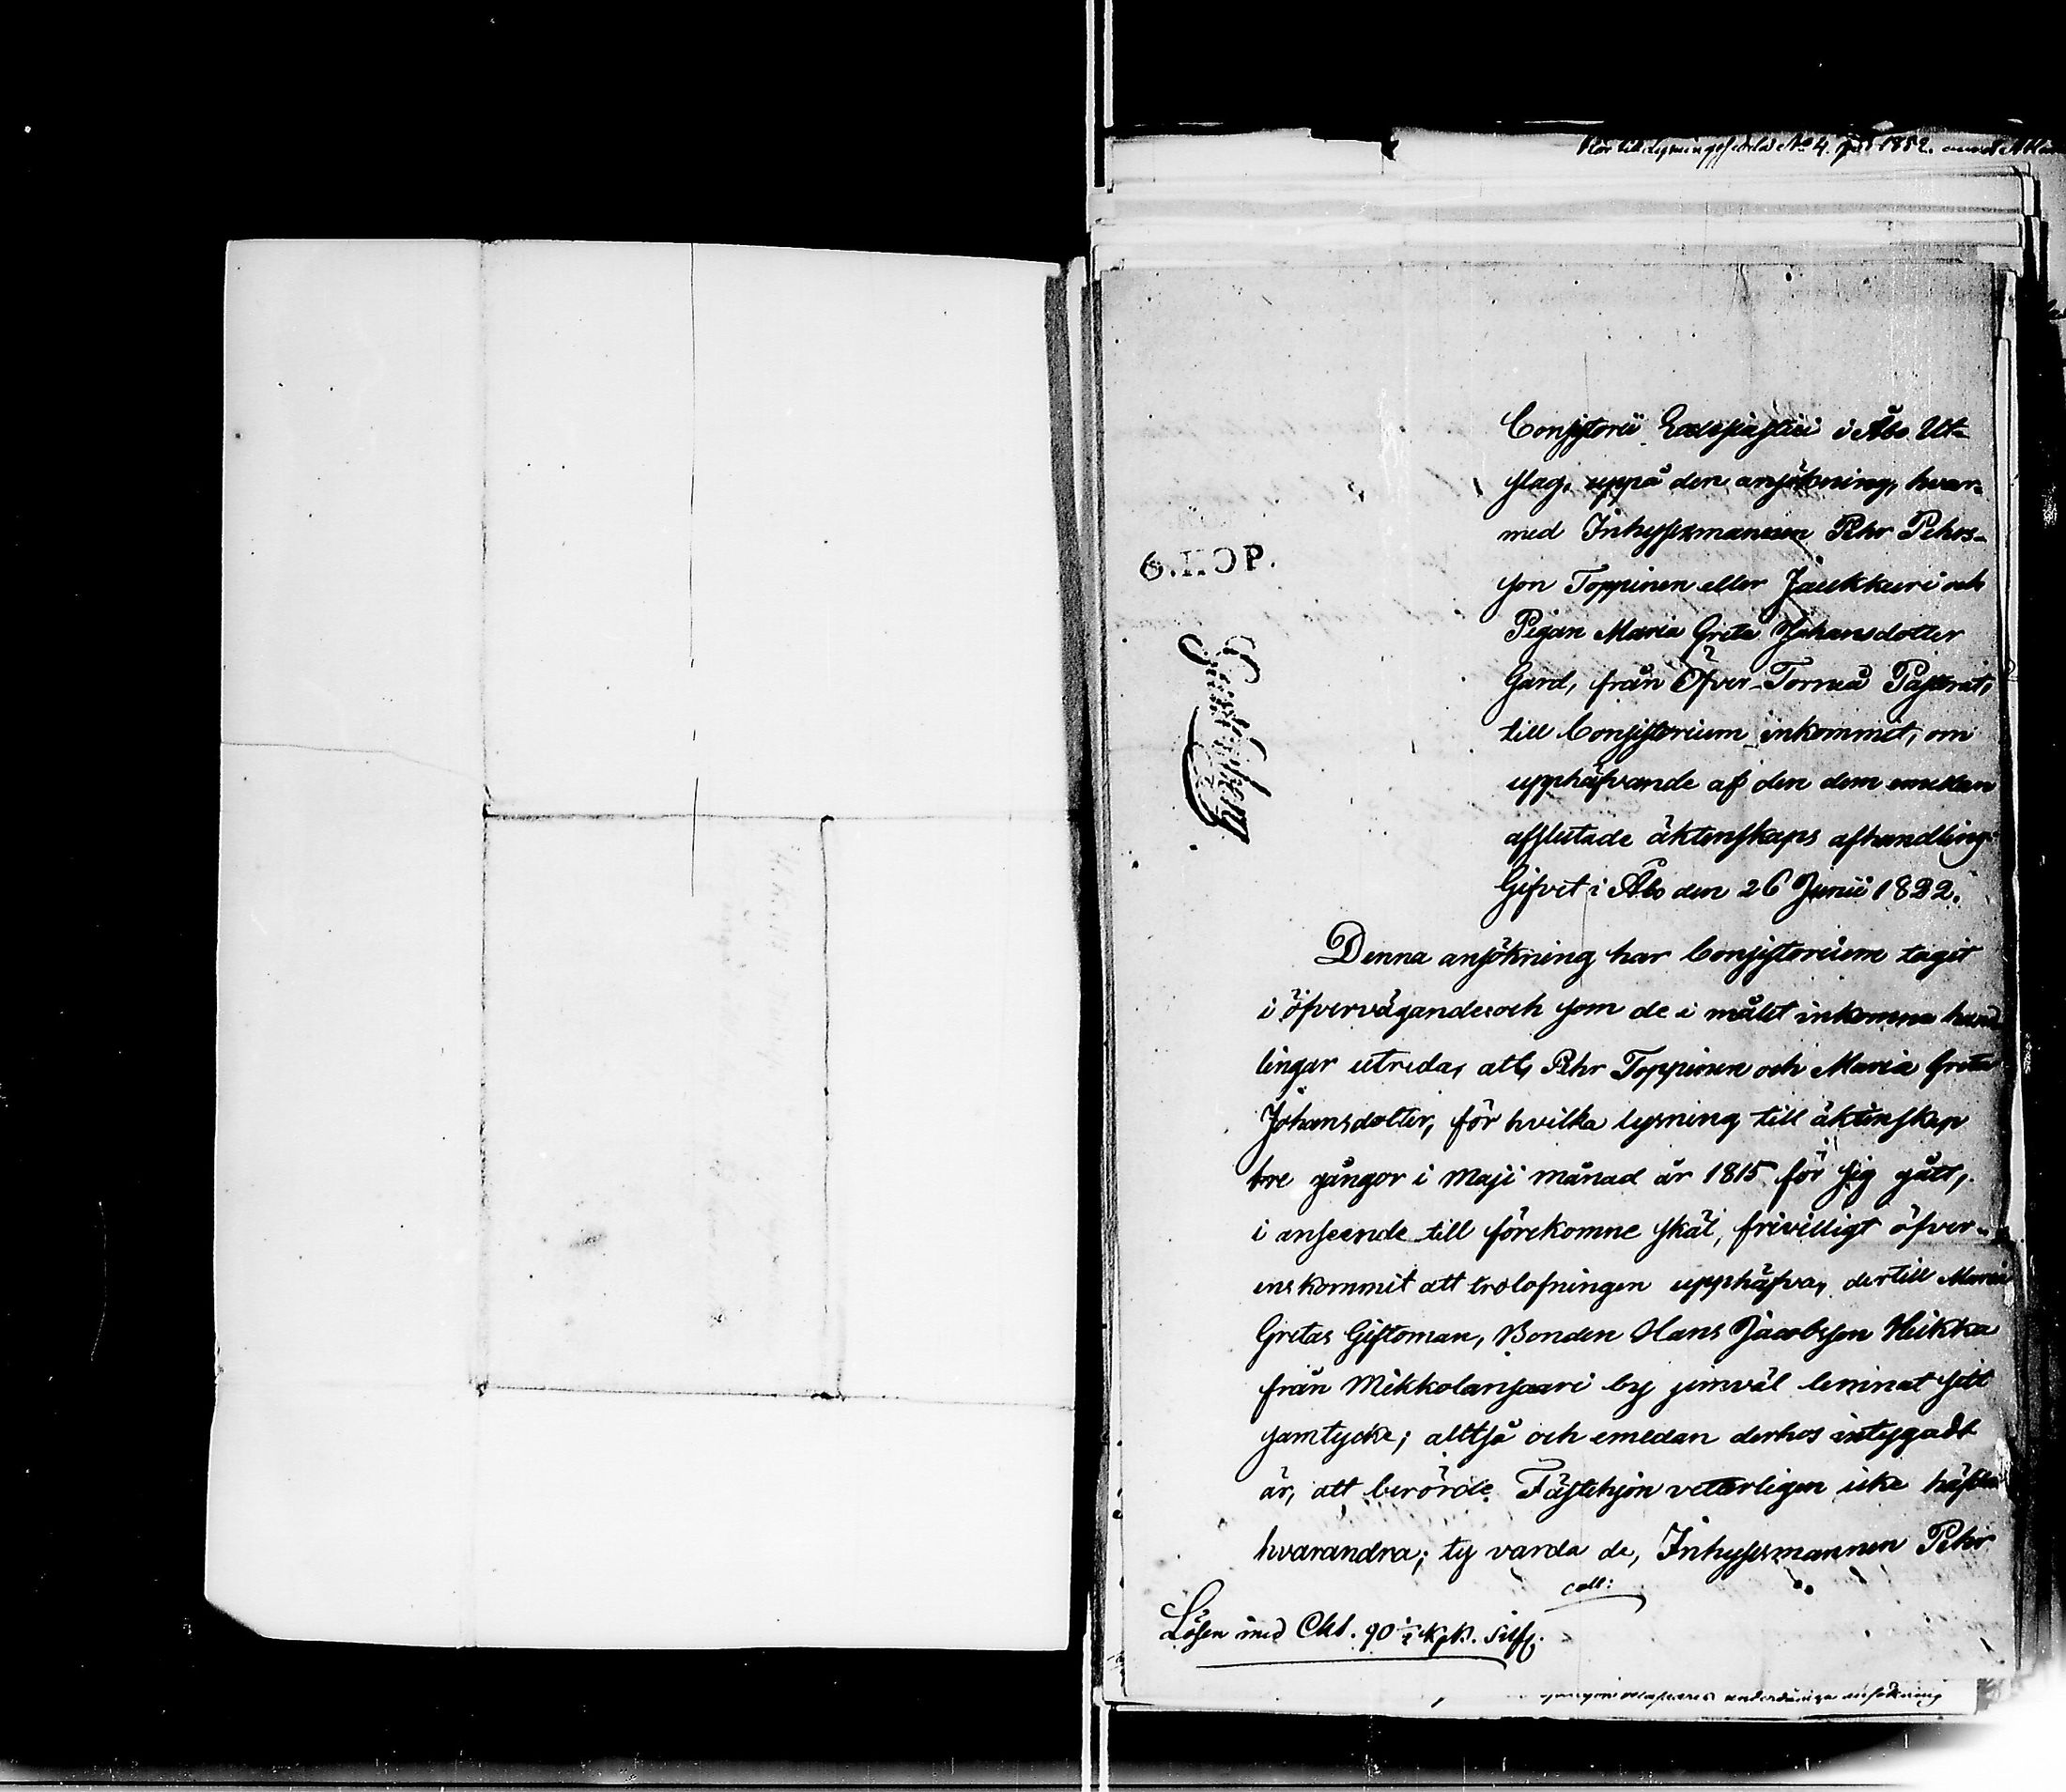 Hör till Lysningssedel No 4. för 1852.
Consistorii Ecclesiastici i Åbo Ut-
slag, uppå den ansökning, hvar-
med Inhysesmannen Pehr Pehrs-
son Toppinen eller Jaukkuri och
6. KOP.
Pigan Maria Greta Johansdotter
Gard, från Öfver-Torneå Pastorat,
till Consistorium inkommit, om
upphäfvande af den dem emellan
afslutade äktenskaps afhandling.
Gifvet i Åbo den 26 Junii 1822.
Denna ansökning har Consistorium tagit
i öfvervägande och som de i målet inkomne hand
lingar utreda, att Pehr Toppinen och Maria Greta
Johansdotter, för hvilka lysning till äktenskap
tre gångor i Maji månad år 1815 för sig gått,
i anseende till förekomne skäl, frivilligt öfver-
enskommit att trolofningen upphäfva, dertill Maria
Gretas Giftoman, Bonden Hans Jacobsson Heikka
från Mikkolansaari by jemväl lemnat sitt
samtycke; alltså och emedan derhos intygadt
är, att berörde Fästehjon veterligen icke häfdat
hvarandra; ty varda de, Inhysesmannen Pehr
Coll:
Lösen med Chl. 90 1/2 Kpk. Silf.
underdåniga ansökning